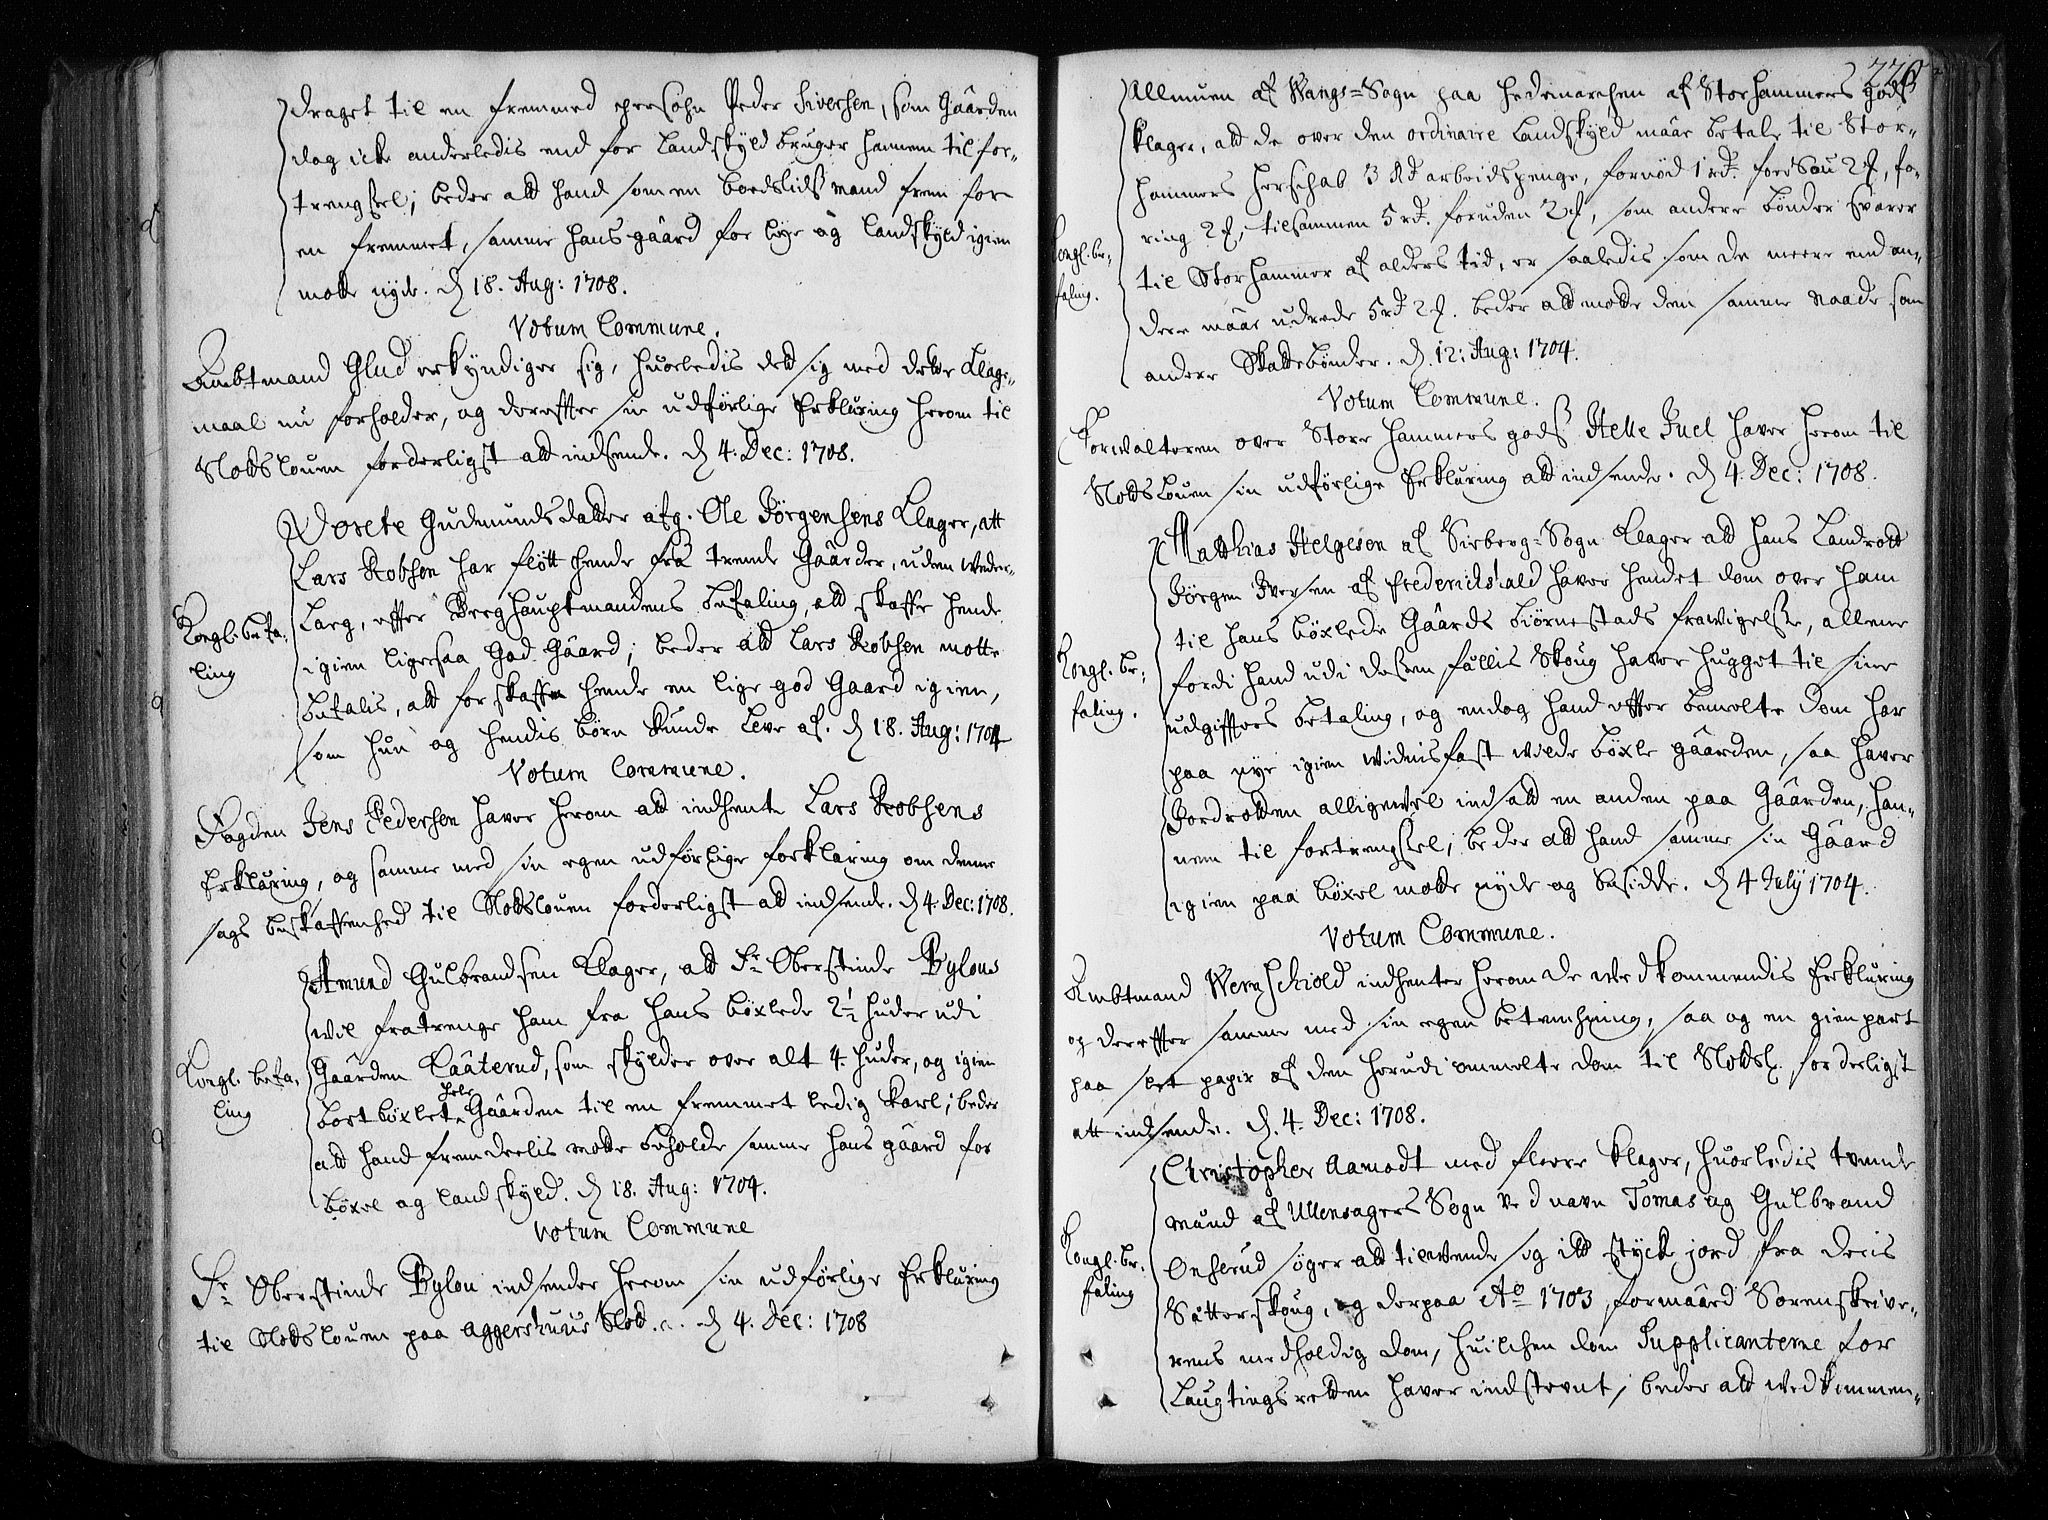 draget til en fremmed persohn Peder Siversen, som Gaarden
dog icke anderledis end for Landskyld bruger hannem til for-
trengsel; beder att hand som en boeslids mand frem for
en fremmet, samme hans gaard for löye og Landskyld igien
motte nyde. d 18. Aug: 1708.
Votum Commune.
Ambtmand Glud erkyndiger sig, huorledis det sig med dette Klage-
maal nu forholder, og dereffter sin udförlige Erklæring herom til
Slotslouen forderligst att indsende. d 4. Dec: 1708.
Dorete Gudmunds datter afg. Ole Jörgensens Klager, att
Lars Robsen har flött hende fra trende Gaarder, uden weder-
Kongl. befa-
ling
larg, effter Berghauptmandens befaling, att skaffe hende
igien ligesaa God Gaard; beder att Lars Robsen motte
befalis, att forskaffe hende en lige god Gaard igien,
som hun og hendis börn kunde leve af. d 18. Aug: 1704
Votum Commune.
Fogden Jens Pedersen haver herom att indhente Lars Robsens
Erklæring, og samme med sin egen udförlige forklaring om denne
sags beskaffenhed til Slotslouen forderligst att indsende. d 4. Dec: 1708.
Amund Gulbrandsen Klager, att Fr. Oberstinde Bylous
wil fratrenge ham fra hans böxlede 2½ huder udi
Kongl. befa-
ling
Gaarden Kaaterud, som skylder over alt 4. huder, og igien
bort böxlet hele Gaarden til en fremmet ledig karl; beder
att hand fremdeelis motte beholde samme hans gaard for
böxel og landskyld. d 18. Aug: 1704.
Votum Commune
Fr. Oberstinde Bylou indsender herom sin udförlige Erklæring
til Slotslouen paa Aggershuus Slot. d 4. Dec: 1708
226
Allmuen af Wangs-Sogn paa Hedemarchen af Storhammers gods
klager, att de over den ordinaire Landskyld maae betale til Stor-
hammers herschab 3 Rd arbeidspenge, fornöd 1 rd. 
ring 2 , tilsammen 5 rd. foruden 2 , som andere bönder svarer
Kongl. be-
faling.
til Storhammer af alders tid, er saaledis som de meere end an-
dere maae udrede 5 rd 2 . beder att motte den samme naade som
andere Skattebönder. d. 12: Aug: 1704.
Votum Commune.
Forwalteren over Store Hammers gods Helle Juel haver herom til
Slotslouen sin udförlige Erklæring att indsende. d 4. Dec: 1708.
Matthias Helgesen af Sieberg-Sogn Klager att hans Landrott
Jörgen Iversen af Frederichshald haver hendet dom over ham
til hans böxlede Gaards Biörnestads frawigelse, allene
Kongl. be-
faling.
fordi hand udi dessen fællis Skoug haver hugget til sine
udgiffters betaling, og endog hand effter bemelte dom har
paa nye igien widnisfast wilde böxle gaarden, saa haver
Jordrotten alligewel indsatt en anden paa Gaarden, han-
nem til fortrengsel; beder att hand samme sin Gaard
igien paa böxel motte nyde og besidde. d 4 July 1704.
Votum Commune.
Ambtmand Wernschiold indhenter herom de wedkommendis Erklæring
og dereffter samme med sin egen betenchning, saa og en gienpart
paa slet papir af den herudi ommelte dom til Slotsl. forderligst
att indsende. d. 4. Dec: 1708.
Christopher Aamodt med fleere klager, huorledis tvende
mænd af Ullensagers Sogn ved navn Tomas og Gulbrand
Kongl. be-
faling
Onserud söger att tilwende sig itt stycke jord fra deris
Sætterskoug, og derpaa Ao 1703 formaard Sorenskrive-
rens medholdig dom, huilchen dom Supplicanterne for
Laugtingsretten haver indstevnt, beder att wedkommen-